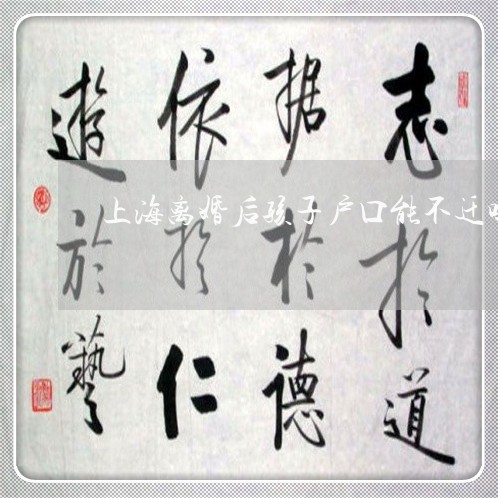 志於道
据於德
依於仁
遊於藝
上海离婚后孩子户口能不迁